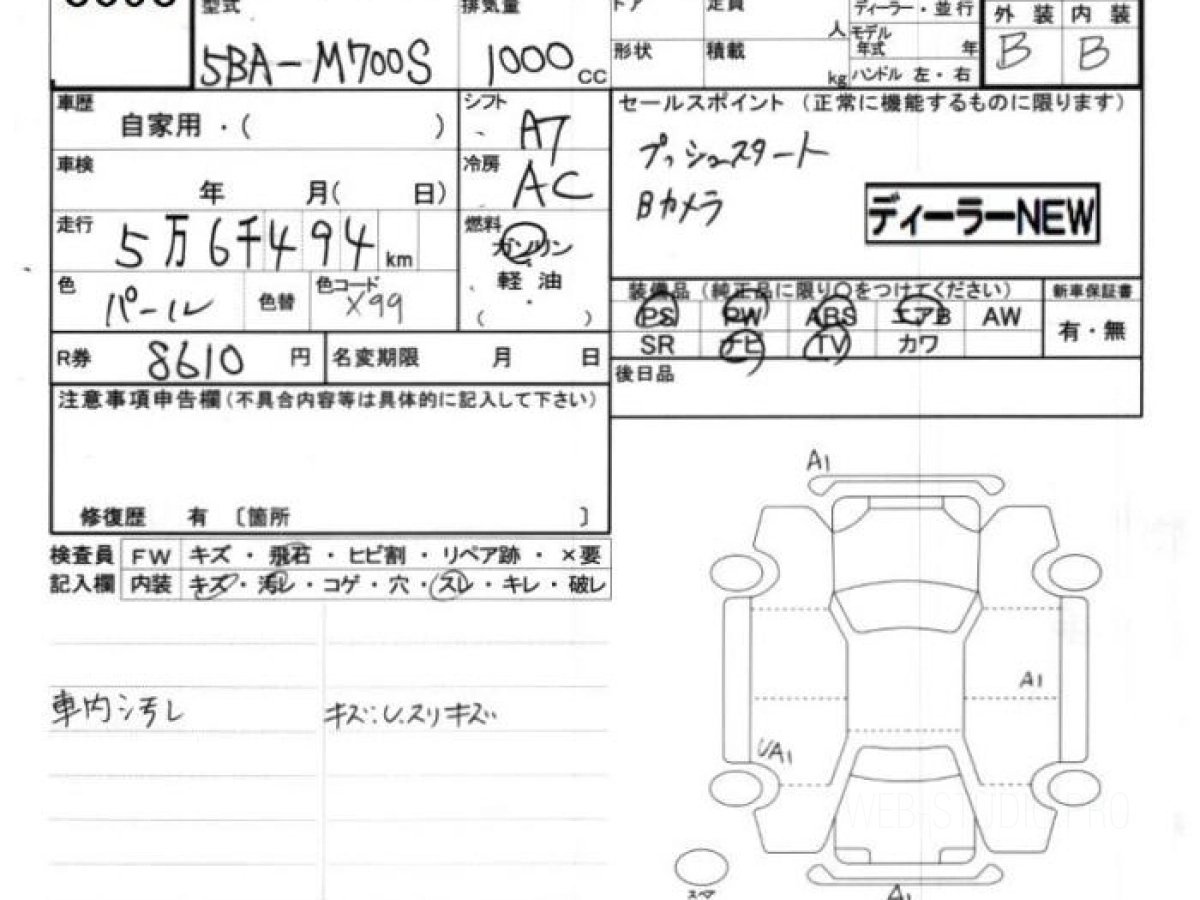 型式
排気量
ドア
定員
人
ディーラー・並行
外装 内装
5BA-M700S
1000 CC
形状
積載
kg
モデル年式
年
B B
ハンドル 左・右
車歴
自家用・( )
シフト
A7
セールスポイント (正常に機能するものに限ります)
プッシュスタート
Bカメラ
ディーラーNEW
車検
年 月( 日)
冷房
AC
走行
5万6千494 km
燃料
ガソリン
軽油
・
( )
色
パール
色替
色コード
X99
装備品 (純正品に限り○をつけてください)
新車保証書
PS PW ABS エアB AW
有・無
SR ナビ TV カワ
R券
8610 円
名変期限 月 日
後日品
注意事項申告欄(不具合内容等は具体的に記入して下さい)
修復歴 有 〔箇所 〕
検査員 FW キズ・飛石・ヒビ割・リペア跡・×要
記入欄 内装 キズ・汚レ・コゲ・穴・スレ・キレ・破レ
車内シ汚レ
キズ:U.スリキズ
A1
A1
UA1
WEB-STUDIO PRO
スペア
A1